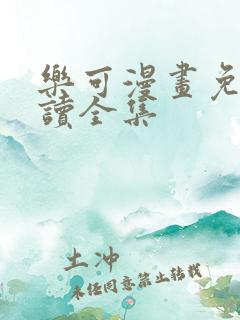 樂可漫畫免
讀全集
土沖
未经同意禁止转载